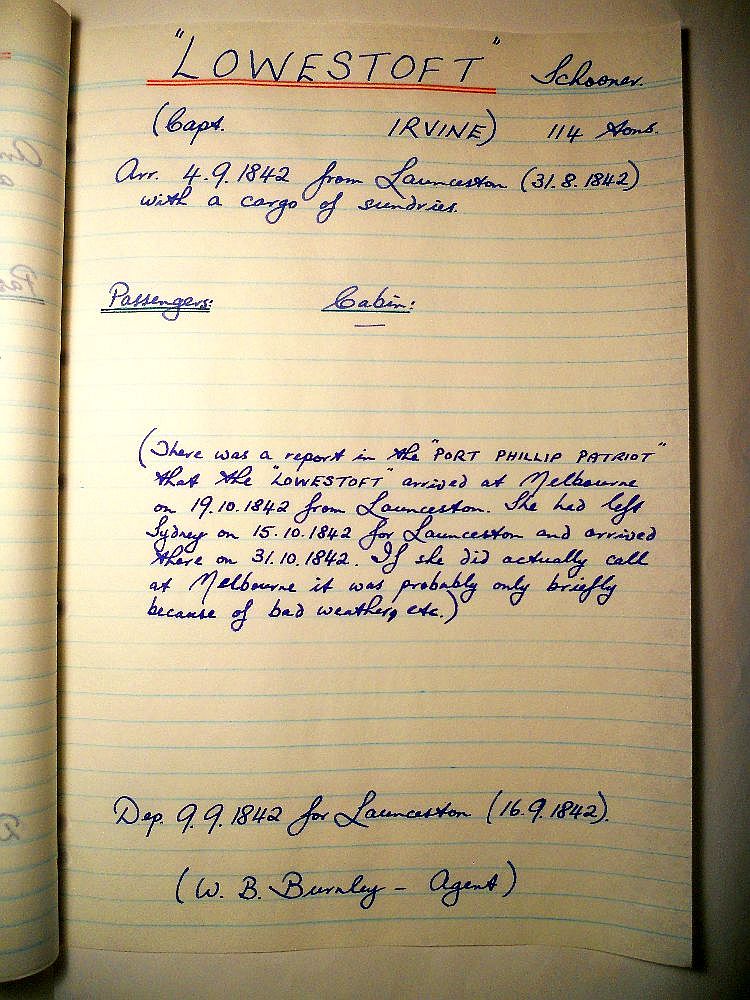 "LOWESTOFT" Schooner.
(Capt. IRVINE) 114 tons.
Arr. 4.9.1842 from Launceston (31.8.1842)
with a cargo of sundries.
Passengers: Cabin:
—
(There was a report in the "PORT PHILLIP PATRIOT"
that the "LOWESTOFT" arrived at Melbourne
on 19.10.1842 from Launceston. She had left
Sydney on 15.10.1842 for Launceston and arrived
there on 31.10.1842. If she did actually call
at Melbourne it was probably only briefly
because of bad weather, etc.)
Dep. 9.9.1842 for Launceston (16.9.1842).
(W. B. Burnley - Agent)